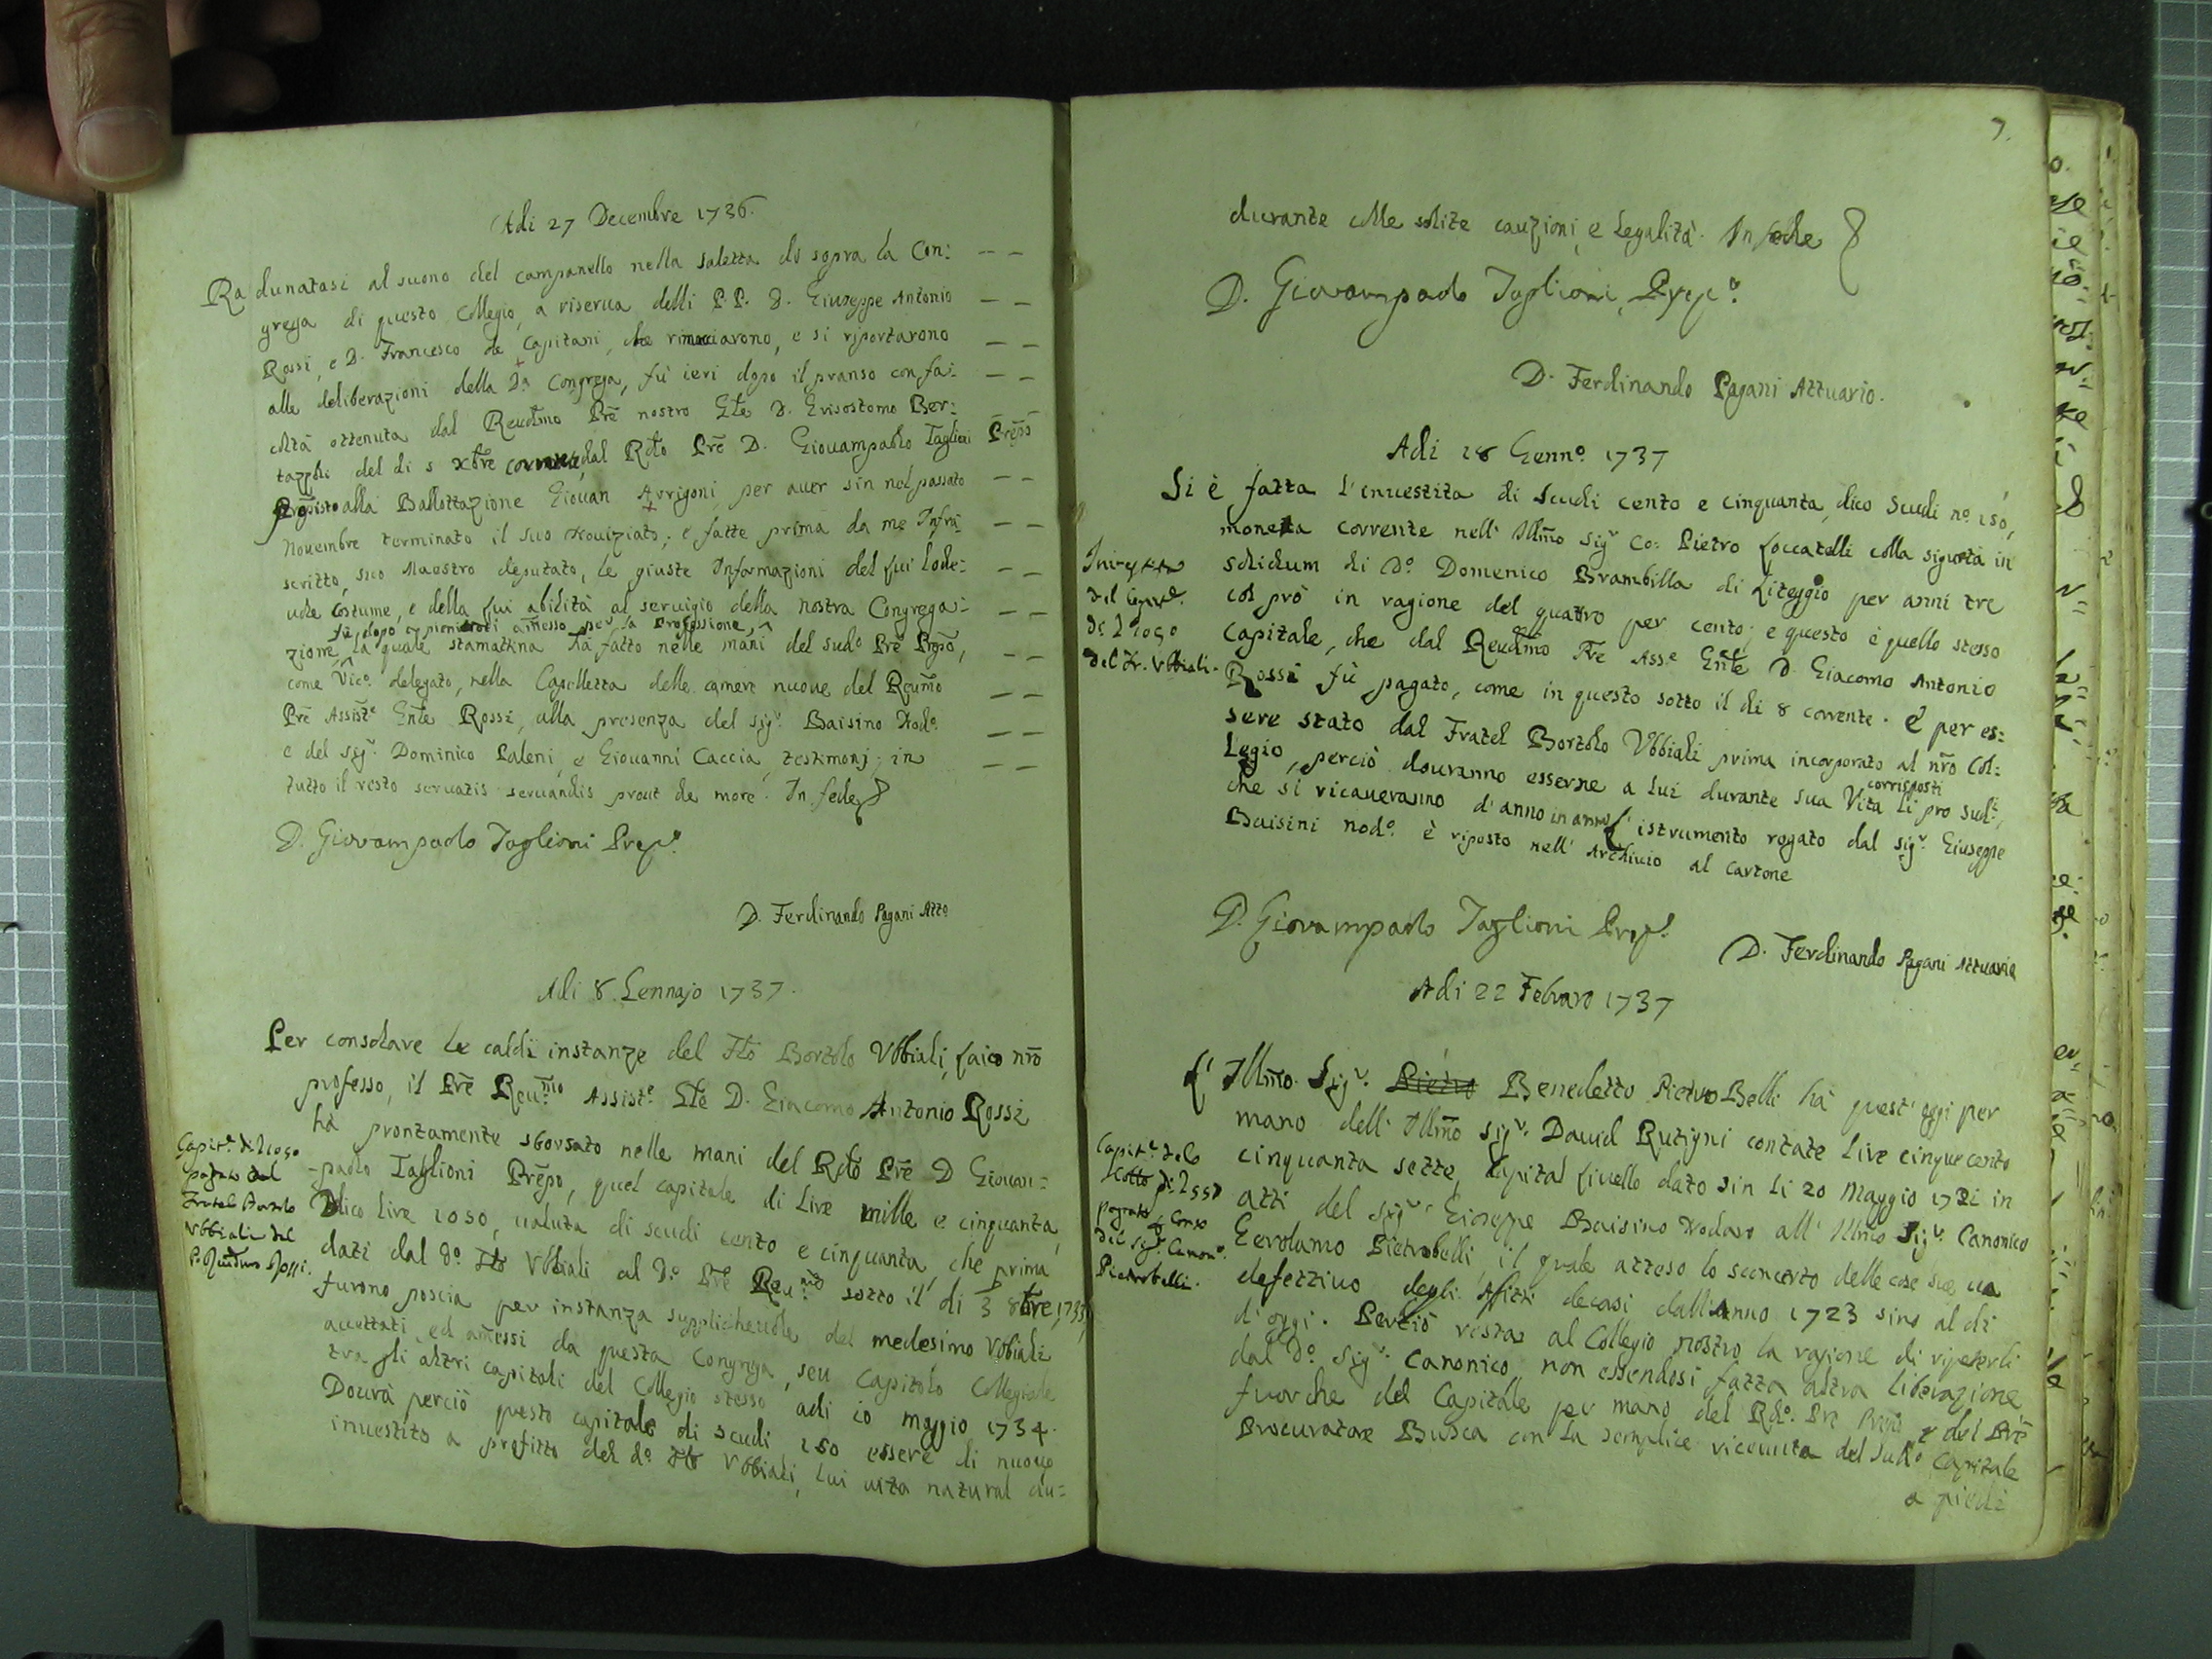 Adi 27 Decembre 1736.
Radunatasi al suono del campanello nella saletta di sopra la Con:
grega di questo Collegio, a riserva delli P.P. D. Giuseppe Antonio
Rossi, e D. Francesco de Capitani, che rinonciarono, e si riportarono
alle deliberazioni della Da Congrega, fù ieri dopo il pranso con fa:
coltà ottenuta dal Reudmo Prē nostro Gle D. Grisostomo Ber:
tazzoli del di 5 xbre corrente, dal Rdo Prē D. Giouampaolo Taglioni Prepo
proposto alla Ballottazione Giouan Arrigoni, per auer sin nel passato
Nouembre terminato il suo Nouiziato; e fatte prima da me Infra
scritto, suo Maestro deputato, le giuste Informazioni del fui lode:
uole Costume, e della fui abilità al seruigio della nostra Congrega:
fù dopo amesso per la Professione,
zione, la quale stamattina hà fatto nelle mani del sudo Prē Prepo,
come Vico delegato, nella Capelletta delle camere nuove del Reumo
Prē Assiste Gnle Rossi, alla presenza del sigr Baisino Nodo
e del sigr Dominico Paleni, e Giouanni Caccia, testimonj; in
tutto il resto seruatis seruandis prout de more. In fede
D. Giovampaolo Taglioni Prepo
D. Ferdinando Pagani Atto
Adi 8. Gennajo 1737.
Per consolare le caldi instanze del Fllo Bortolo Vbbiali, laico nrō
professo, il Prē Reu.mo Assiste Gle D. Giacomo Antonio Rossi
hà prontamente sborsato nelle mani del Rdo Prē D Giouan:
-paolo Taglioni Prēpo, quel capitale di Lire mille e cinquanta,
Dico Lire 1050, ualuta di scudi cento e cinquanta, che prima
dati dal do Fllo Vbbiali al do Prē Reu.mo sotto il di 3 8bre, 1733,
furono poscia per instanza supplicheuole del medesimo Vbbiali
accettati, ed amessi da questa Congrega, seu Capitolo Collegiale
tra gli altri capitali del Collegio stesso adi 10 maggio 1734.
Dourà perciò questo capitale di scudi 150 essere di nuouo
inuestito a profitto del do Fllo Vbbiali, lui uita natural du=
Capite di L 1050
pagato dal
Fratel Bortolo
Vbbiali dal
P. Reudmo Rossi.
7.
durante colle solite cauzioni, e legalità. In fede
D. Giovampaolo Taglioni, Prepo
D. Ferdinando Pagani Attuario.
Adi 18 Genno 1737
Si è fatta l'inuestita di Scudi cento e cinquanta, dico Scudi no 150,
moneta corrente nell' Illmo sigr Co: Pietro Loccatelli colla sigurtà in
solidum di Do Domenico Brambilla di Liteggio per anni tre
col prò in ragione del quattro per cento; e questo è quello stesso
capitale, che dal Reudmo Prē Asse Gnle D. Giacomo Antonio
Rossi fù pagato, come in questo sotto il di 8 corrente. E per es:
sere stato dal Fratel Bortolo Vbbiali prima incorporato al nrō Col:
legio, perciò douranno esserne a lui durante sua Vita corrisposti li pro sudi,
che si ricaueranno d'anno in anno. L'istrumento rogato dal sigr Giuseppe
Baisini nodo è riposto nell' Archiuio al Cartone
del Capitle
di L 1050
del Fr. Vbbiali.
D. Giovampaolo Taglioni Prepo
D. Ferdinando Pagani Attuario
Adi 22 Febraro 1737
L' Illmo. Sigr. Pietro Benedetto PietroBelli hà quest'oggi per
mano dell' Illmo sigr David Rutigni contate Lire cinquecento
cinquanta sette, Capital liuello dato sin li 20 Maggio 1721 in
atti del sigr Gioseppe Baisino Nodaro all' Illmo Sigr Canonico
Gerolamo Pietrobelli, il quale atteso lo sconcerto delle cose sue ua
defettiuo degli Affitti decorsi dall'Anno 1723 sino al di
d'oggi. Perciò restar al Collegio nostro la ragione di ripeterli
dal Do Sigr Canonico non essendosi fatta altra liberazione
fuorche del Capitale per mano del Rdo Prē Prepo, e del Prē
Procuratore Busca con la semplice riceuuta del Sudo Capitale
a piedi
Capitle delo
di L 557
pagato
del Sigr Canono
Pietrobelli.